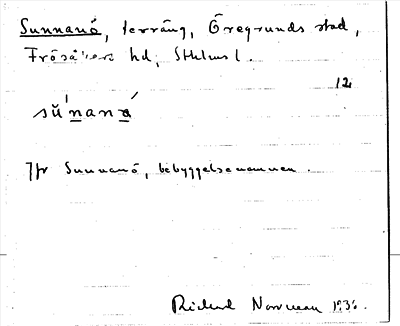 Sunnanö, terräng, Öregrunds stad,
Frösåkers hd, Sthlms l.
12
Jfr Sunnanö, bebyggelsenamnen.
Rickard Norrman 1936.